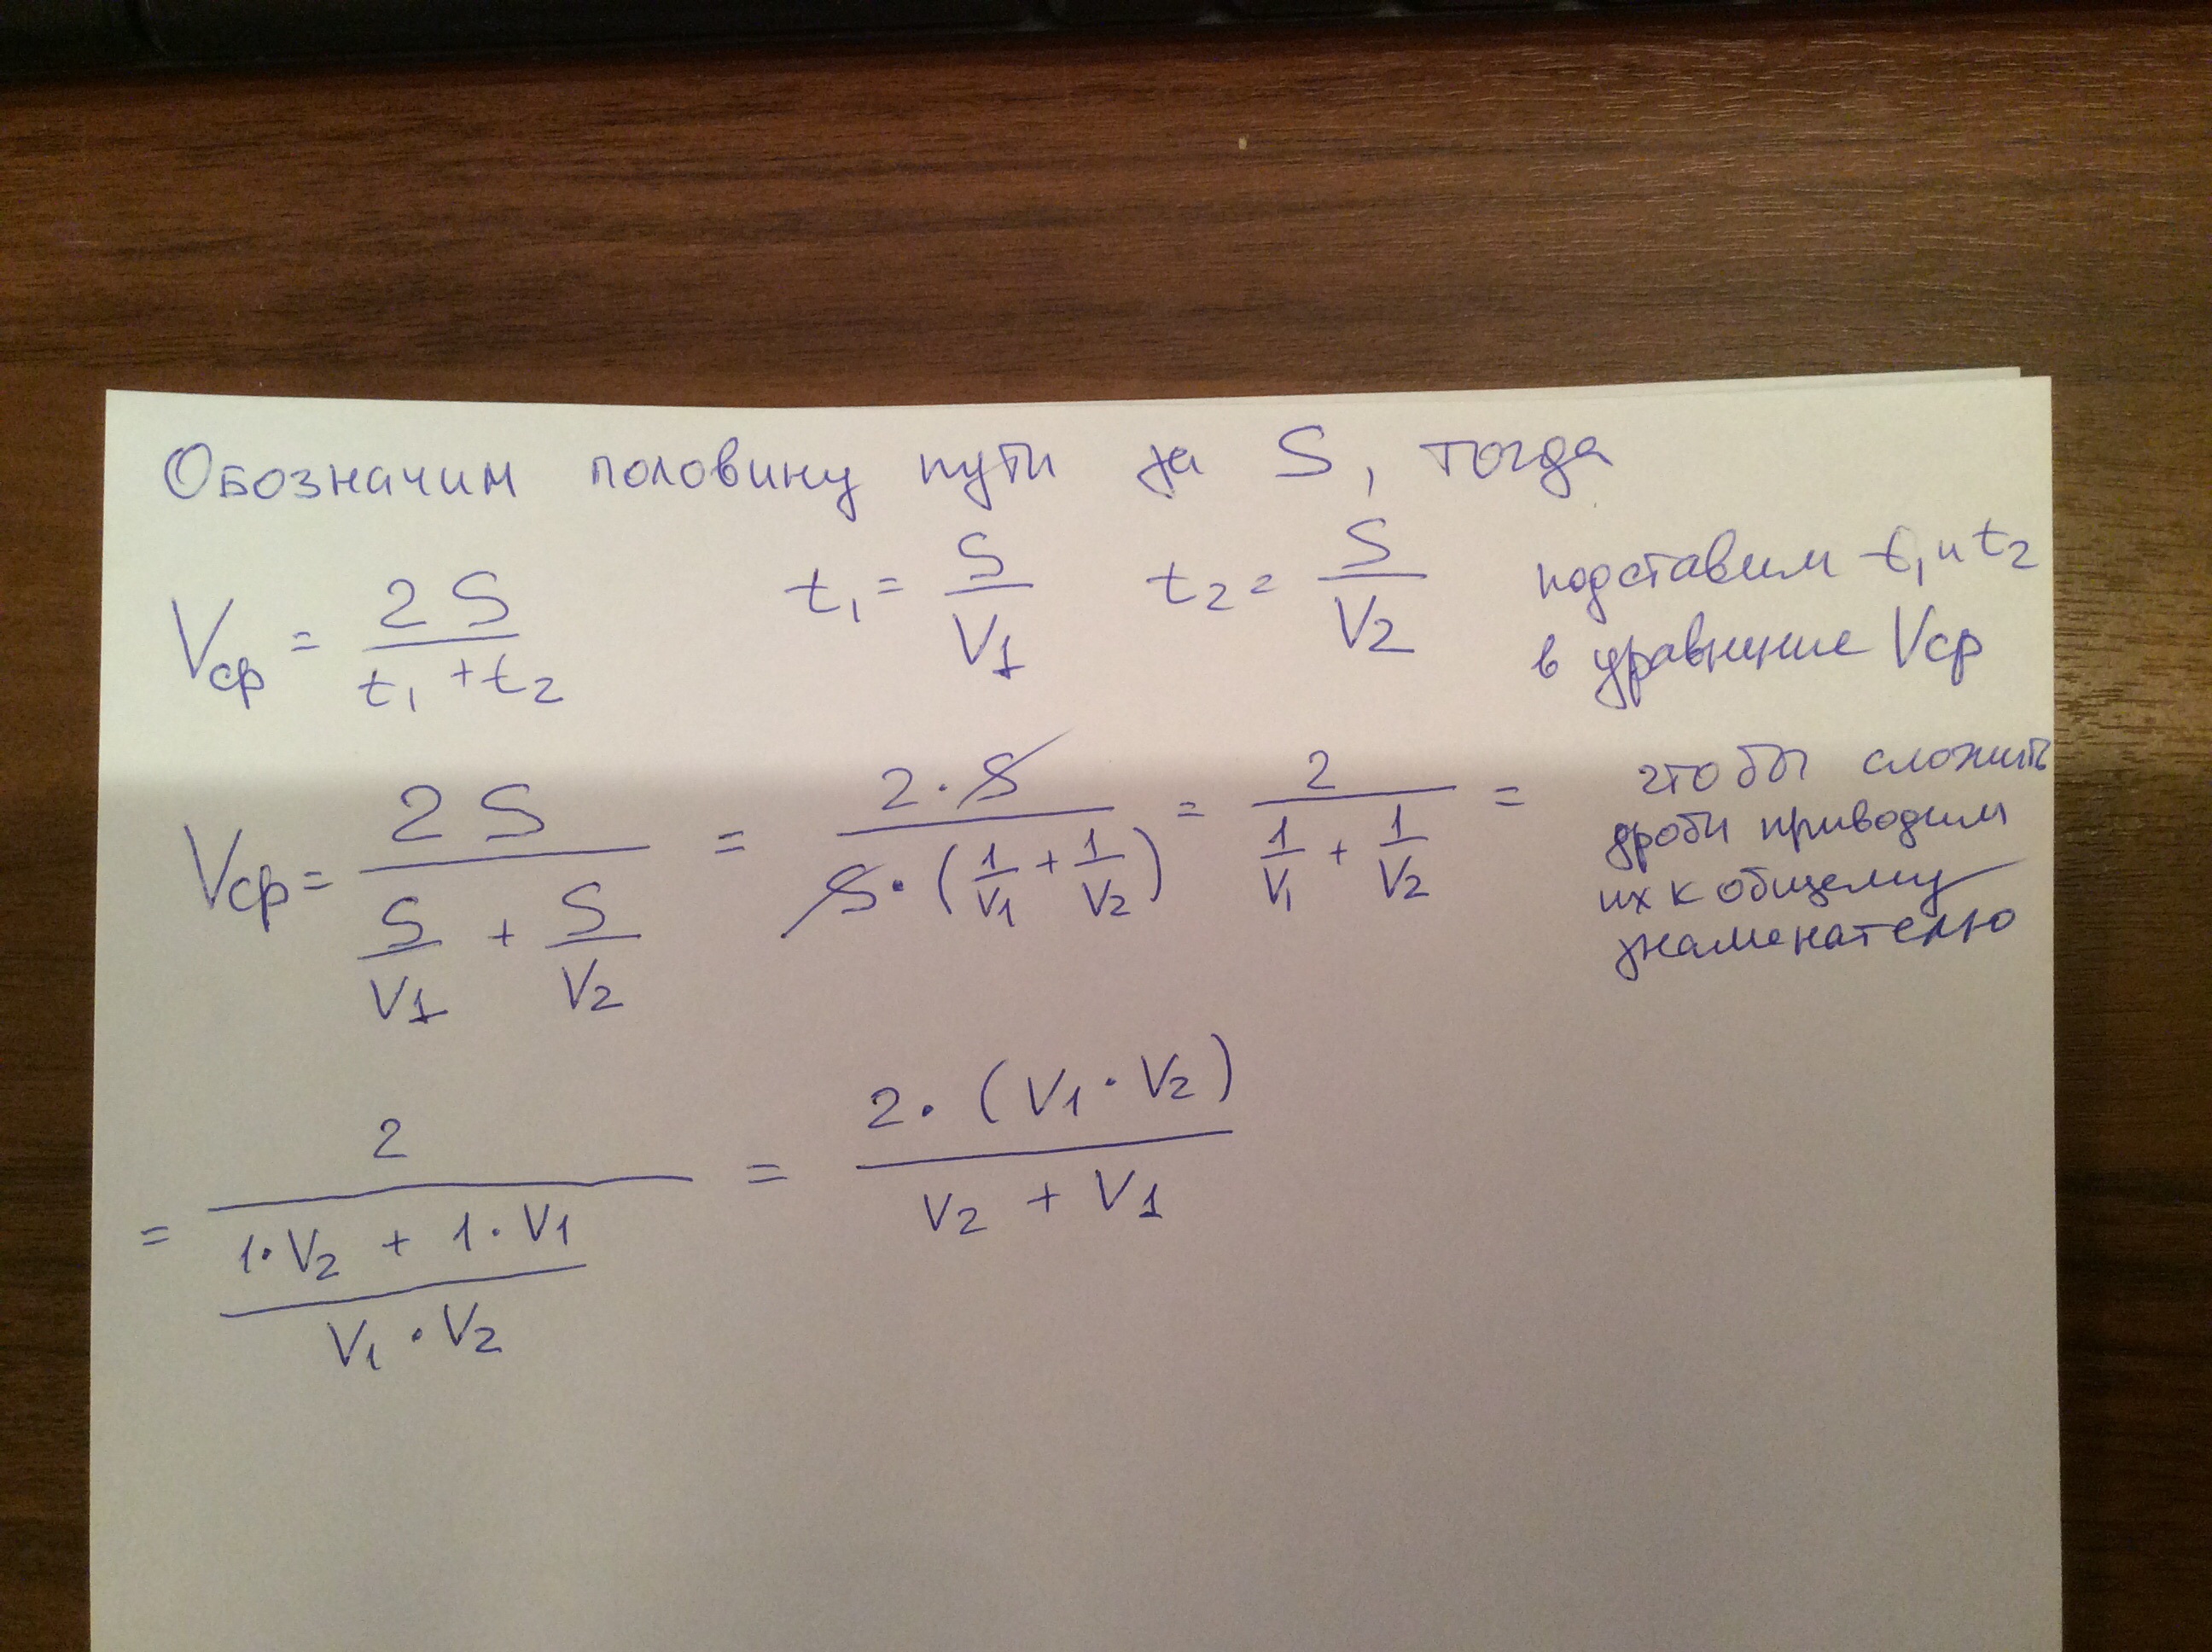 Обозначим половину пути за S, тогда
Vср = 2S / (t₁ + t₂)   t₁ = S / V₁   t₂ = S / V₂   подставим t₁ и t₂
в уравнение Vср
Vср = 2S / (S/V₁ + S/V₂) = 2·S / (S·(1/V₁ + 1/V₂)) = 2 / (1/V₁ + 1/V₂) =
чтобы сложить
дроби приводим
их к общему
знаменателю
= 2 / ((1·V₂ + 1·V₁) / (V₁·V₂)) = 2·(V₁·V₂) / (V₂ + V₁)